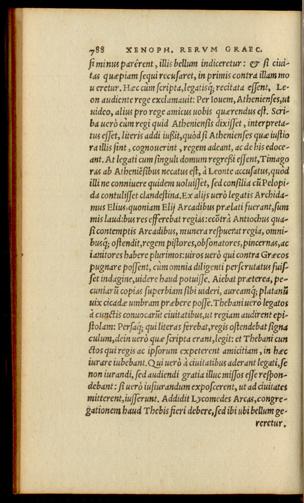 788 XENOPH. RERVM GRAEC.
si minus parêrent, illis bellum indiceretur: & si ciui-
tas quæpiam sequi recusaret, in primis contra illam mo
ueretur. Hæc cùm scripta, legatisq; recitata essent, Le-
on audiente rege exclamauit: Per Iouem, Athenienses, ut
uideo, alius pro rege amicus uobis quærendus est. Scri-
ba uerò cùm regi quid Atheniensis dixisset, interpreta-
tus esset, literis addi iußit, quòd si Athenienses quæ iustio
ra illis sint, cognouerint, regem adeant, ac de his edoce-
ant. At legati cum singuli domum regreßi essent, Timago
ras ab Atheniēsibus necatus est, à Leonte accusatus, quòd
ille ne conniuere quidem uoluisset, sed consilia cū Pelopi-
da contulisset clandestina. Ex alijs uerò legatis Archida-
mus Elius, quoniam Elij Arcadibus prælati fuerant, sum
mis laudibus res efferebat regias: cōtrà Antiochus qua-
si contemptis Arcadibus, munera respuerat regia, omni-
busq; ostendit, regem pistores, obsonatores, pincernas, ac
ianitores habere plurimos: uiros uerò qui contra Græcos
pugnare possent, cùm omnia diligenti perscrutatus fuis-
set indagine, uidere haud potuisse. Aiebat præterea, pe-
cuniarū copias superbiam sibi uideri, aureamq; platanū
uix cicadæ umbram præbere posse. Thebani uerò legatos
à cunctis conuocarūt ciuitatibus, ut regiam audirent epi-
stolam: Persaq; qui literas ferebat, regis ostendebat signa
culum, dein uerò quæ scripta erant, legit: et Thebani cun
ctos qui regis ac ipsorum expeterent amicitiam, in hæc
iurare iubebant. Qui uerò à ciuitatibus aderant legati, se
non iurandi, sed audiendi gratia illuc missos esse respon-
debant: si uerò iusiurandum exposcerent, ut ad ciuitates
mitterent, iusserunt. Addidit Lycomedes Arcas, congre-
gationem haud Thebis fieri debere, sed ibi ubi bellum ge-
reretur.